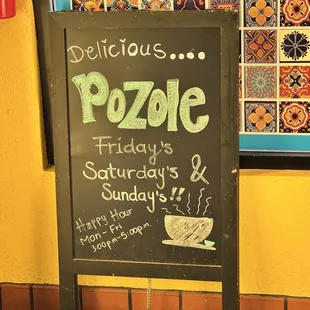 Delicious....
Pozole
Friday's
Saturday's &
Sunday's!!
Happy Hour
Mon-Fri
3:00pm-5:00pm.